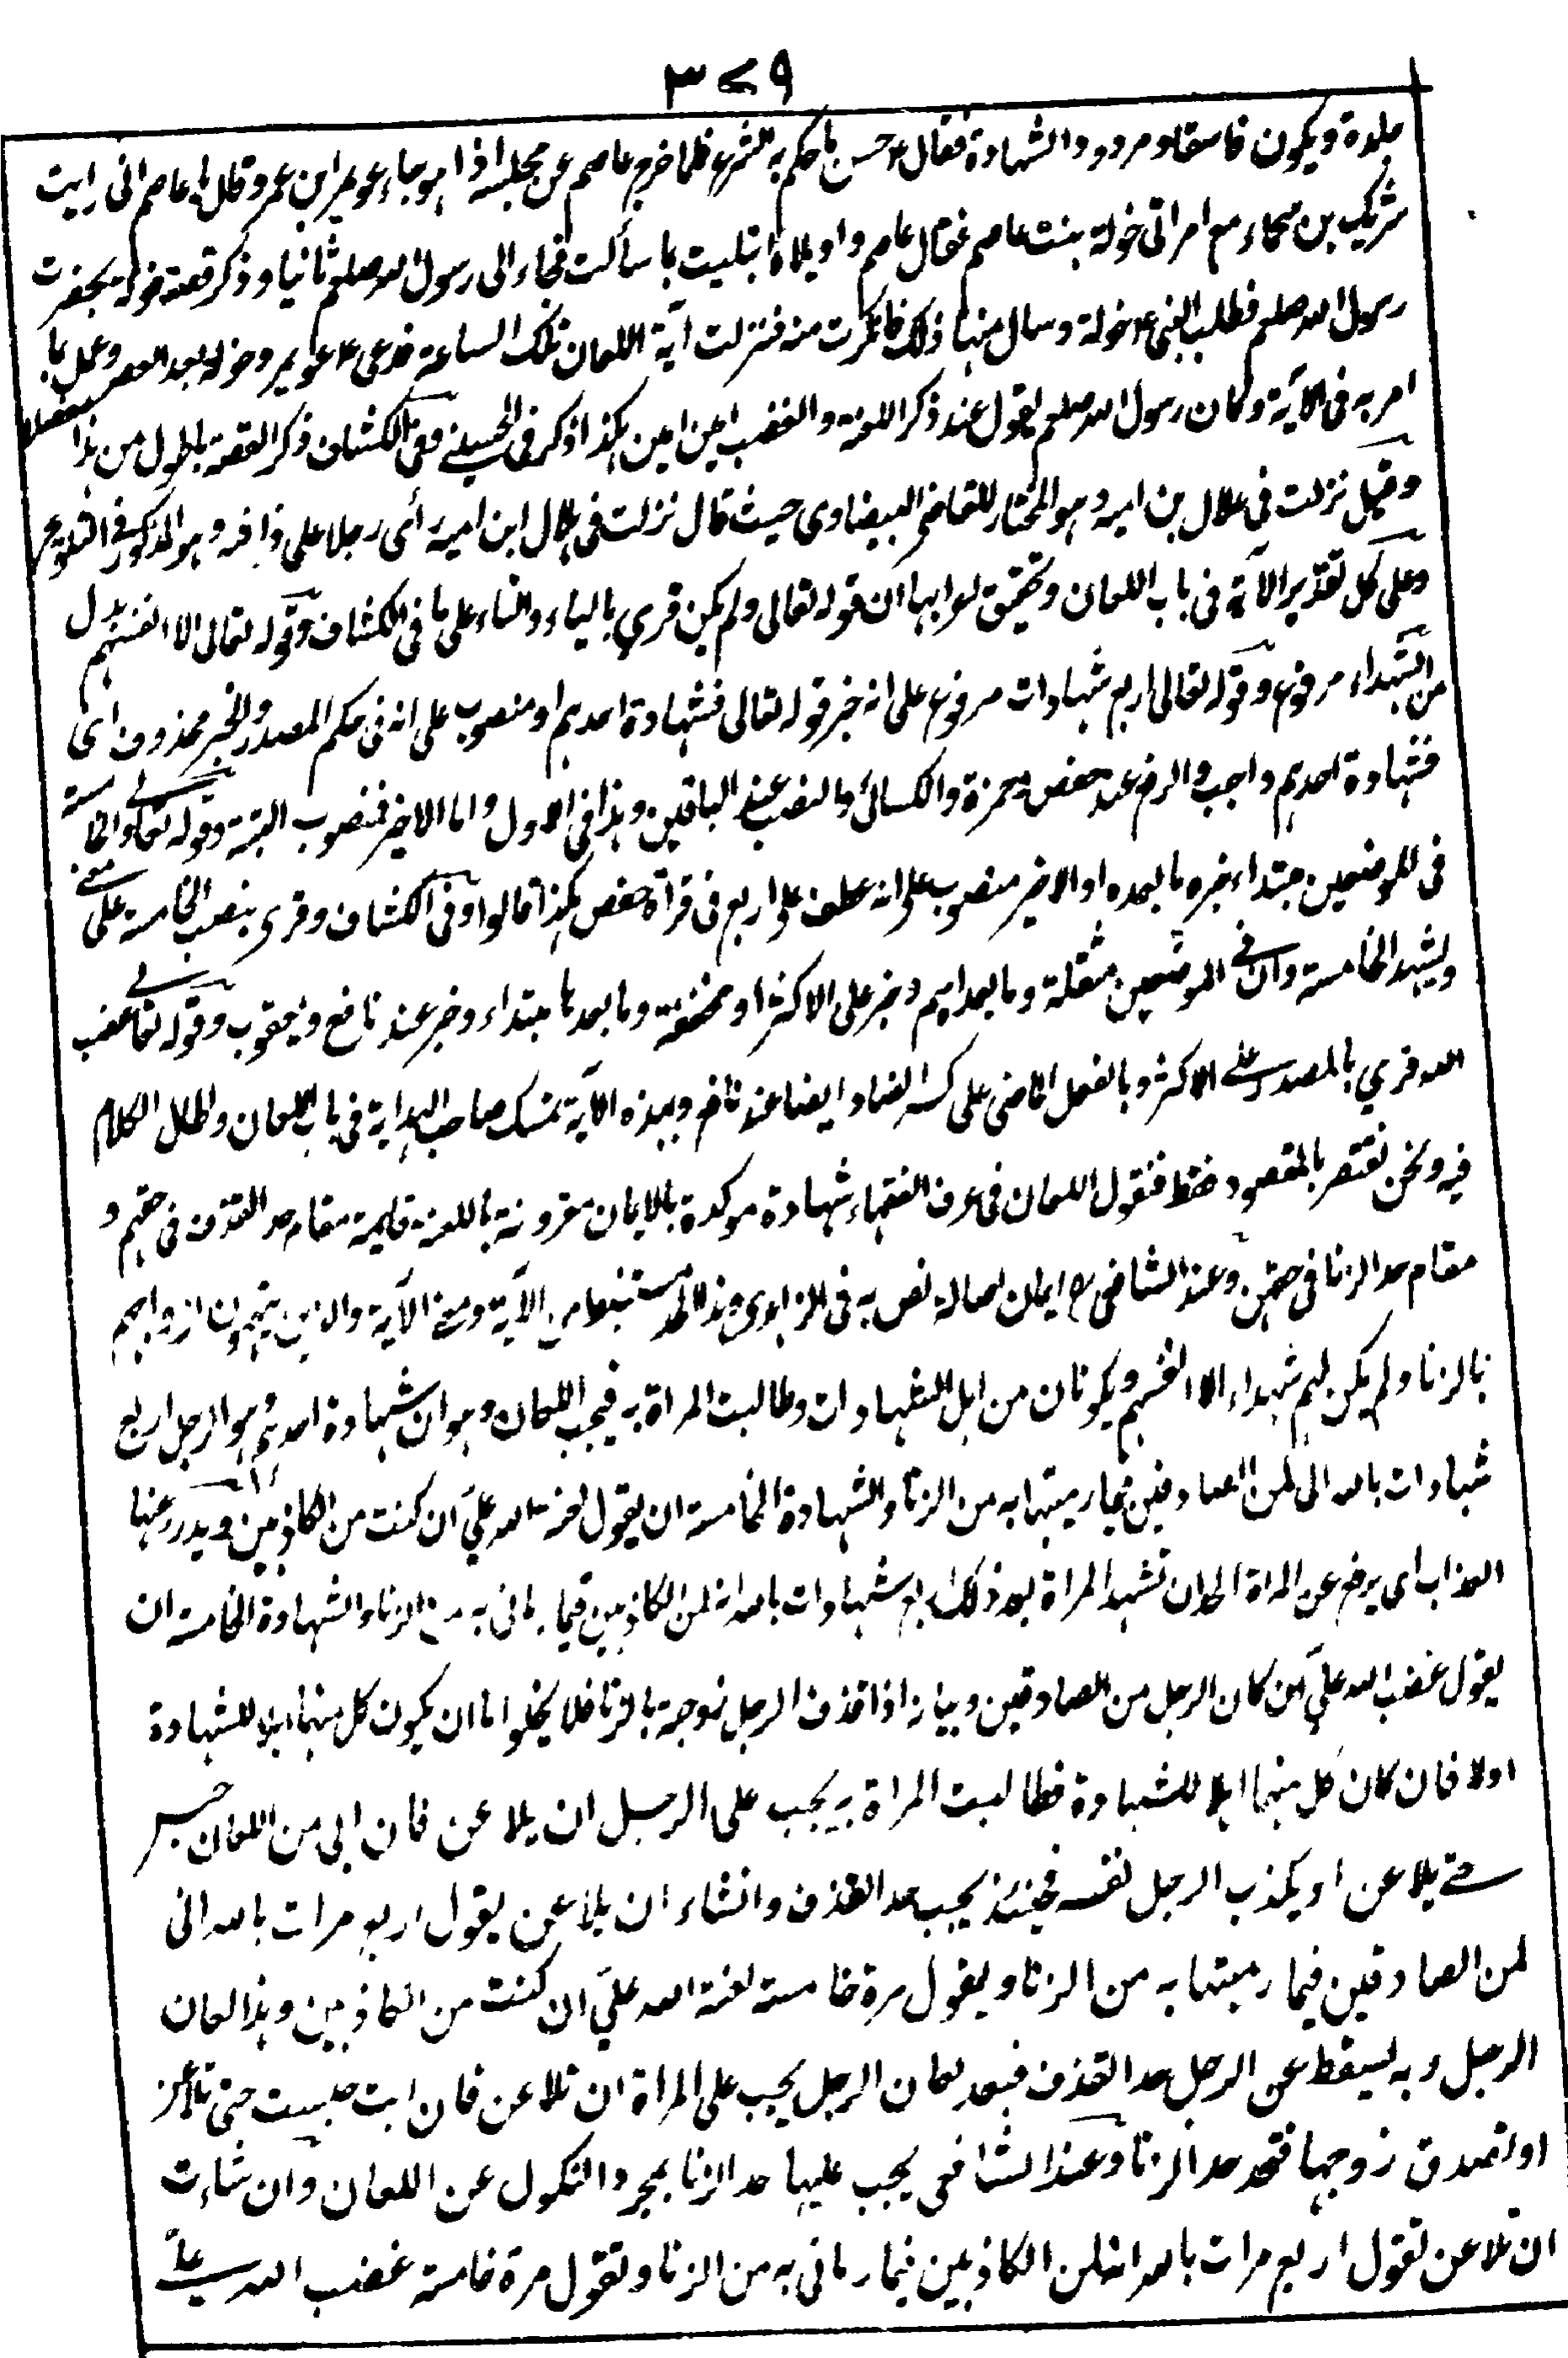 ٣٧٩
جلدة ويكون فاسقا ومردود الشهادة فقال ع حسن ما حكم به الشرع فلما خرج عاصم عن مجلسه اذا هو جاء عويمر ابن عمرو قال يا عاصم انى رايت
شريك بن سحماء مع امراتى خولة بنت عاصم فقال عاصم واويلاه ابتليت بما سألت فجاء الى رسول الله صلعم ثانيا وذكر قصة خولة بحضرت
رسول الله صلعم فطلب النبى ع خولة وسال منها ذلك فانكرت منه فنزلت آية اللعان تلك الساعة فدعى ع عويمر وخولة بعد العصر وعمل بما
امر به فى الآية وكان رسول الله صلعم يقول عند ذكر اللعنة والغضب امين امين هكذا ذكر فى الحسينے وفى الكشاف ذكر القصة باطول من هذا مفصلا
وقيل نزلت في هلال بن امية وهو المختار للقاضى البيضاوى حيث قال نزلت فى هلال ابن امية رأى رجلا على فراشه وهو المذكور فى التلويح
وعلى كل تقدير الآية فى باب اللعان وتحقيق اعرابها ان قوله تعالى ولم يكن قرئ بالياء والتاء على ما فى الكشاف وقوله تعالى الا انفسهم بدل
من الشهداء مرفوع وقوله تعالى اربع شهادات مرفوع على انه خبر قوله تعالى فشهادة احدهم او منصوب على انه فى حكم المصدر والخبر محذوف اى
فشهادة احدهم واجب والرفع عند حفص وحمزة والكسائى والنصب عند الباقين وهذا فى الاول واما الاخير فمنصوب البتة وقوله تعالے والخامسة
فى الموضعين مبتداء خبره ما بعده او الاخير منصوب على انه عطف على اربع فى قرأة حفص هكذا قالوا وفى الكشاف وقرى بنصب الخامسة على معنے
ويشهد الخامسة وان فے الموضعين مثقلة وما بعدها اسم وخبر على الاكثر او مخففة وما بعدها مبتداء وخبر عند نافع ويعقوب وقوله تعالے غضب
الله قري بالمصدر علے الاكثر وبالفعل الماضى على كسر الضاد ايضا عند نافع وبهذه الآية تمسك صاحب الهداية فى باب اللعان واطال الكلام
فيه ونحن نقتصر بالمقصود فقط فنقول اللعان فى عرف الفقهاء شهادة موكدة بالايمان مقرونة باللعنة قايمة مقام حد القذف فى حقهم و
مقام حد الزنا فى حقهن وعند الشافعى رح ايمان اصالة نص به فى الزاهدى وهذا الحد مستنبط من الآية ومعنے الآية والذين يتهمون ازواجهم
بالزنا ولم يكن لهم شهداء الا انفسهم ويكونان من اهل الشهادات وطالبت المراة به فيجب اللعان وهو ان شهادة احدهم وهو الرجل اربع
شهادات بالله انى لمن الصادقين فيما رميتها به من الزنا والشهادة الخامسة ان يقول لعنة الله عليّ ان كنت من الكاذبين ويدرء عنها
العذاب اى يرفع عن المراة الحد ان تشهد المراة بعد ذلك اربع شهادات بالله انه لمن الكاذبين فيما رمانى به من الزنا والشهادة الخامسة ان
يقول غضب الله عليّ ان كان الرجل من الصادقين وبيانه اذا قذف الرجل زوجة بالزنا فلا يخلوا ما ان يكون كل منهما اهلا للشهادة
اولا فان كان كل منهما اهلا للشهادة فطالبت المراة به يجب على الرجل ان يلاعن فان ابى من اللعان حبس
حتے يلاعن او يكذب الرجل نفسه فحينئذ يجب حد القذف وانشاء ان يلاعن يقول اربع مرات بالله انى
لمن الصادقين فيما رميتها به من الزنا ويقول مرة خامسة لعنة الله عليّ ان كنت من الكاذبين وهذا لعان
الرجل وبه يسقط عن الرجل حد القذف فبعد لعان الرجل يجب على المراة ان تلاعن فان ابت حبست حتى تلاعن
او تصدق زوجها فتحد حد الزنا وعند الشافعى يجب عليها حد الزنا بمجرد النكول عن اللعان وان شاءت
ان تلاعن تقول اربع مرات بالله انه لمن الكاذبين فيما رمانى به من الزنا وتقول مرة خامسة غضب الله علے